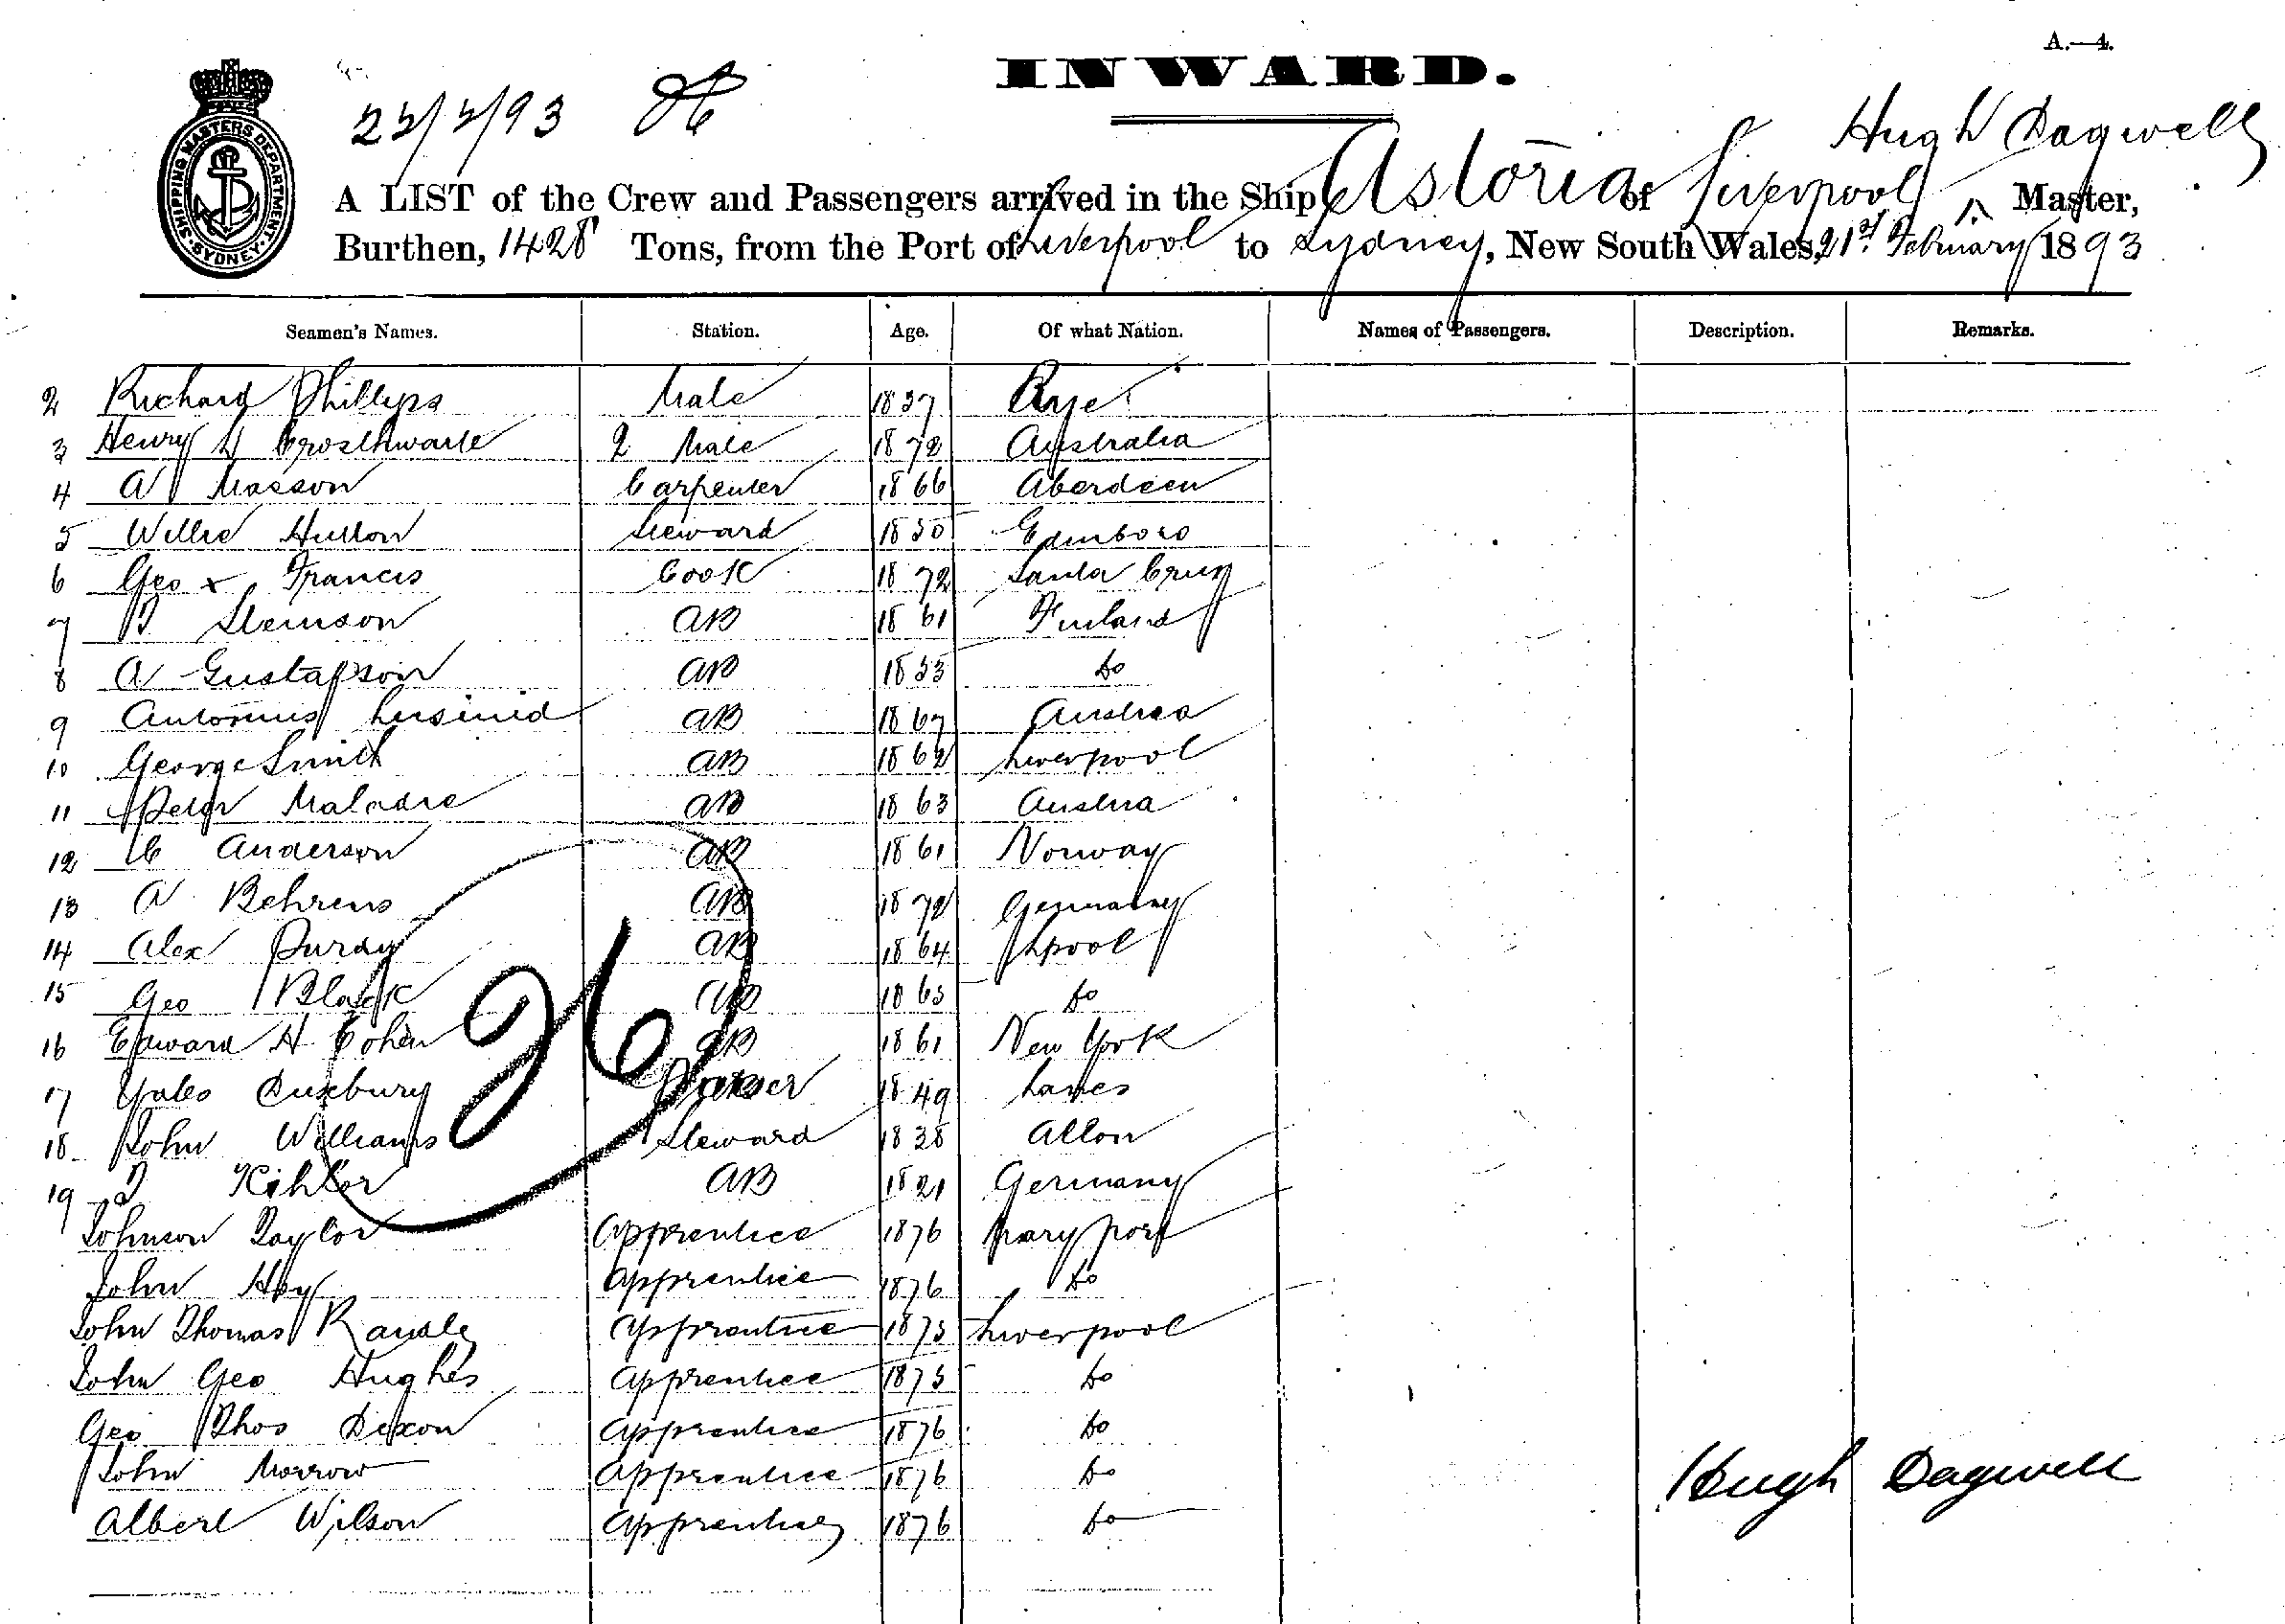 A.—4.
INWARD.
22/2/93
Hugh Dagwell
SHIPPING MASTERS DEPARTMENT. SYDNEY.
A LIST of the Crew and Passengers arrived in the Ship Astoria of Liverpool, Master,
Burthen, 1428 Tons, from the Port of Liverpool to Sydney, New South Wales, 21st February 1893
Seamen's Names. Station. Age. Of what Nation. Names of Passengers. Description. Remarks.
2 Richard Phillips Mate 1837 Rye
3 Henry Crosthwaite 2 Mate 1872 Australia
4 A Masson Carpenter 1866 Aberdeen
5 Willie Hutton Steward 1850 Edinboro
6 Geo x Francis Cook 1872 Santa Cruz
7 Steinson AB 1861 Finland
8 A Gustafson AB 1853 do
9 Antonius AB 1867 Austria
10 George Smith AB 1862 Liverpool
11 Peter AB 1863 Austria
12 C Anderson AB 1861 Norway
13 A Behrens AB 1872 Germany
14 Alex Purdy AB 1864 Lpool
15 Geo Black AB 1865 do
16 Edward H Cohen AB 1861 New York
17 Yates Duxbury 1849 Lancs
18 John Williams Steward 1838 Alloa
19 Kohler AB 1821 Germany
Johnson Taylor Apprentice 1876 Maryport
John Hoy Apprentice 1876 do
John Thomas Randle Apprentice 1875 Liverpool
John Geo Hughes Apprentice 1875 do
Geo Thos Dixon Apprentice 1876 do
John Morrow Apprentice 1876 do
Albert Wilson Apprentice 1876 do
26
Hugh Dagwell